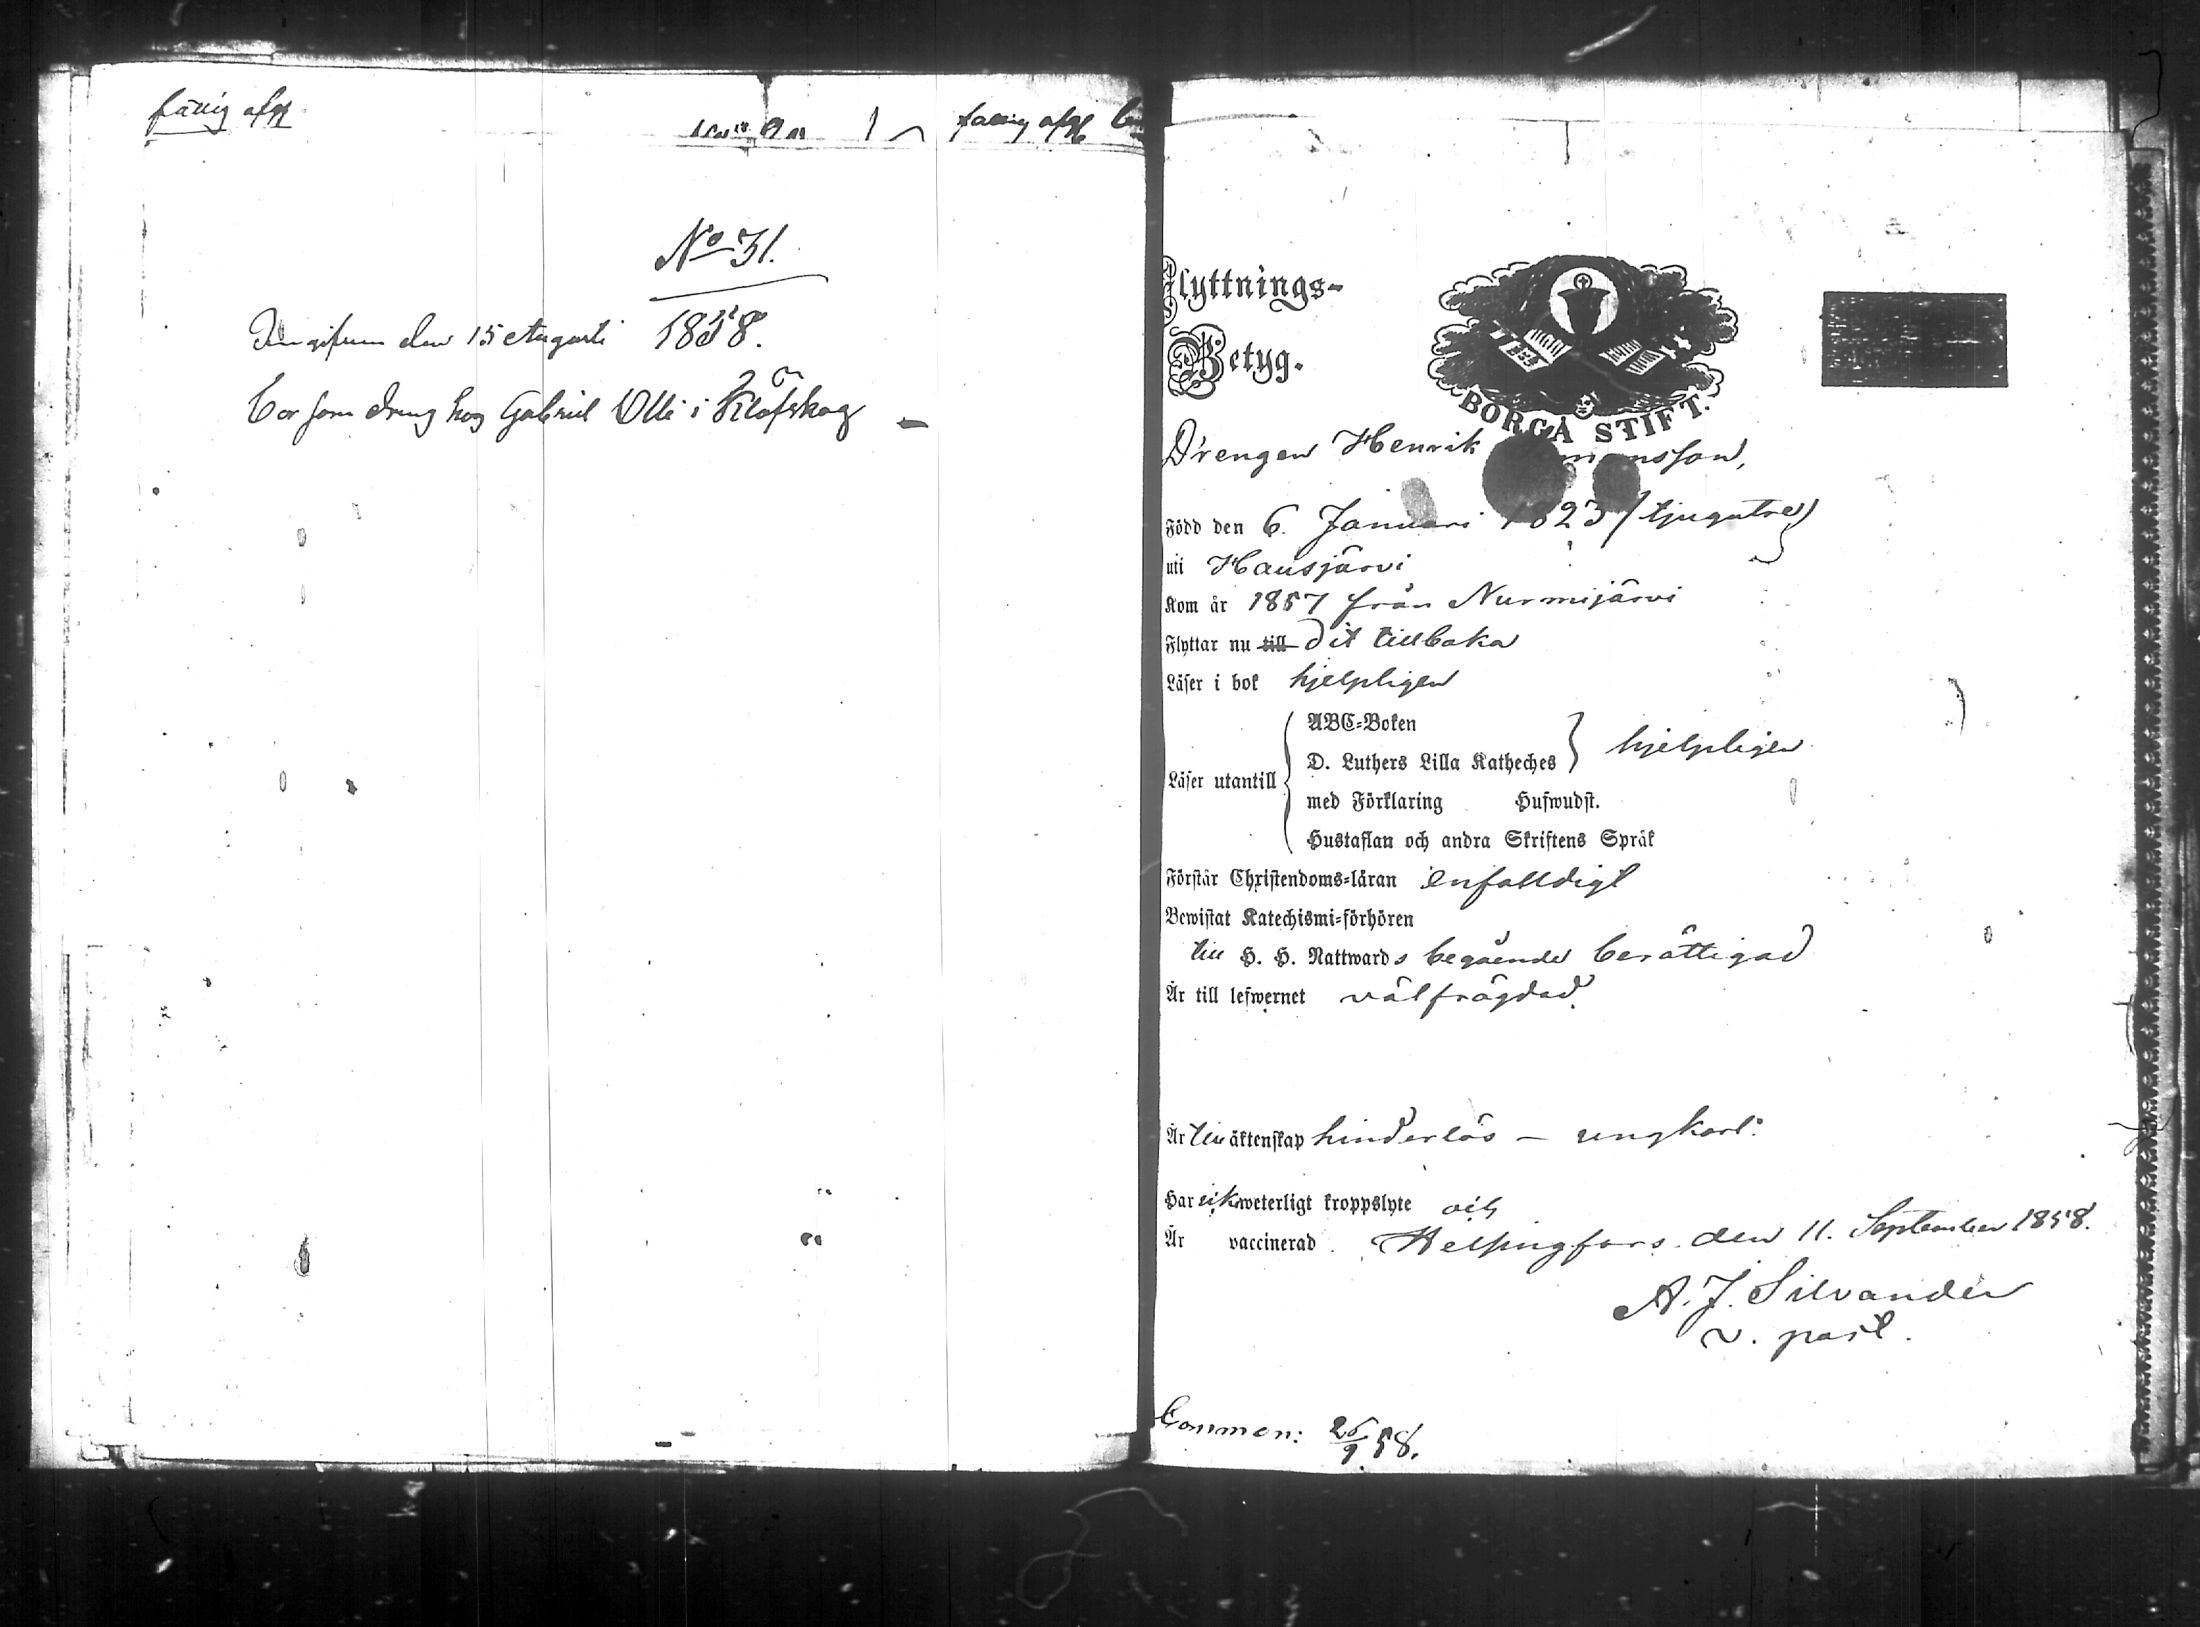 fattig afg
fattig afg
No 31.
Ingifven den 15 Augusti 1858.
Bor som dreng hos Gabriel Olli i Klöfskog –
Flyttnings-
Betyg.
BORGÅ STIFT.
Drengen Henrik
Född den 6. Januari 1823 (tjugutre)
uti Hausjärvi
Kom år 1857 från Nurmijärvi
Flyttar nu till dit tillbaka
Läser i bok hjelpligen
ABC-Boken
D. Luthers Lilla Katheches } hjelpligen
Läser utantill
med Förklaring Hufwudst.
Hustaflan och andra Skriftens Språk
Förstår Christendoms-läran enfalldigt
Bewistat Katechismi-förhören
till H. H. Nattwards begående berättigad
Är till lefwernet välfrägdad.
Är till äktenskap hinderlös – ungkarl.
Har ick weterligt kroppslyte och
Är vaccinerad. Helsingfors den 11. September 1858.
A. J. Silvander
v. past.
Commen: 26/9 58.